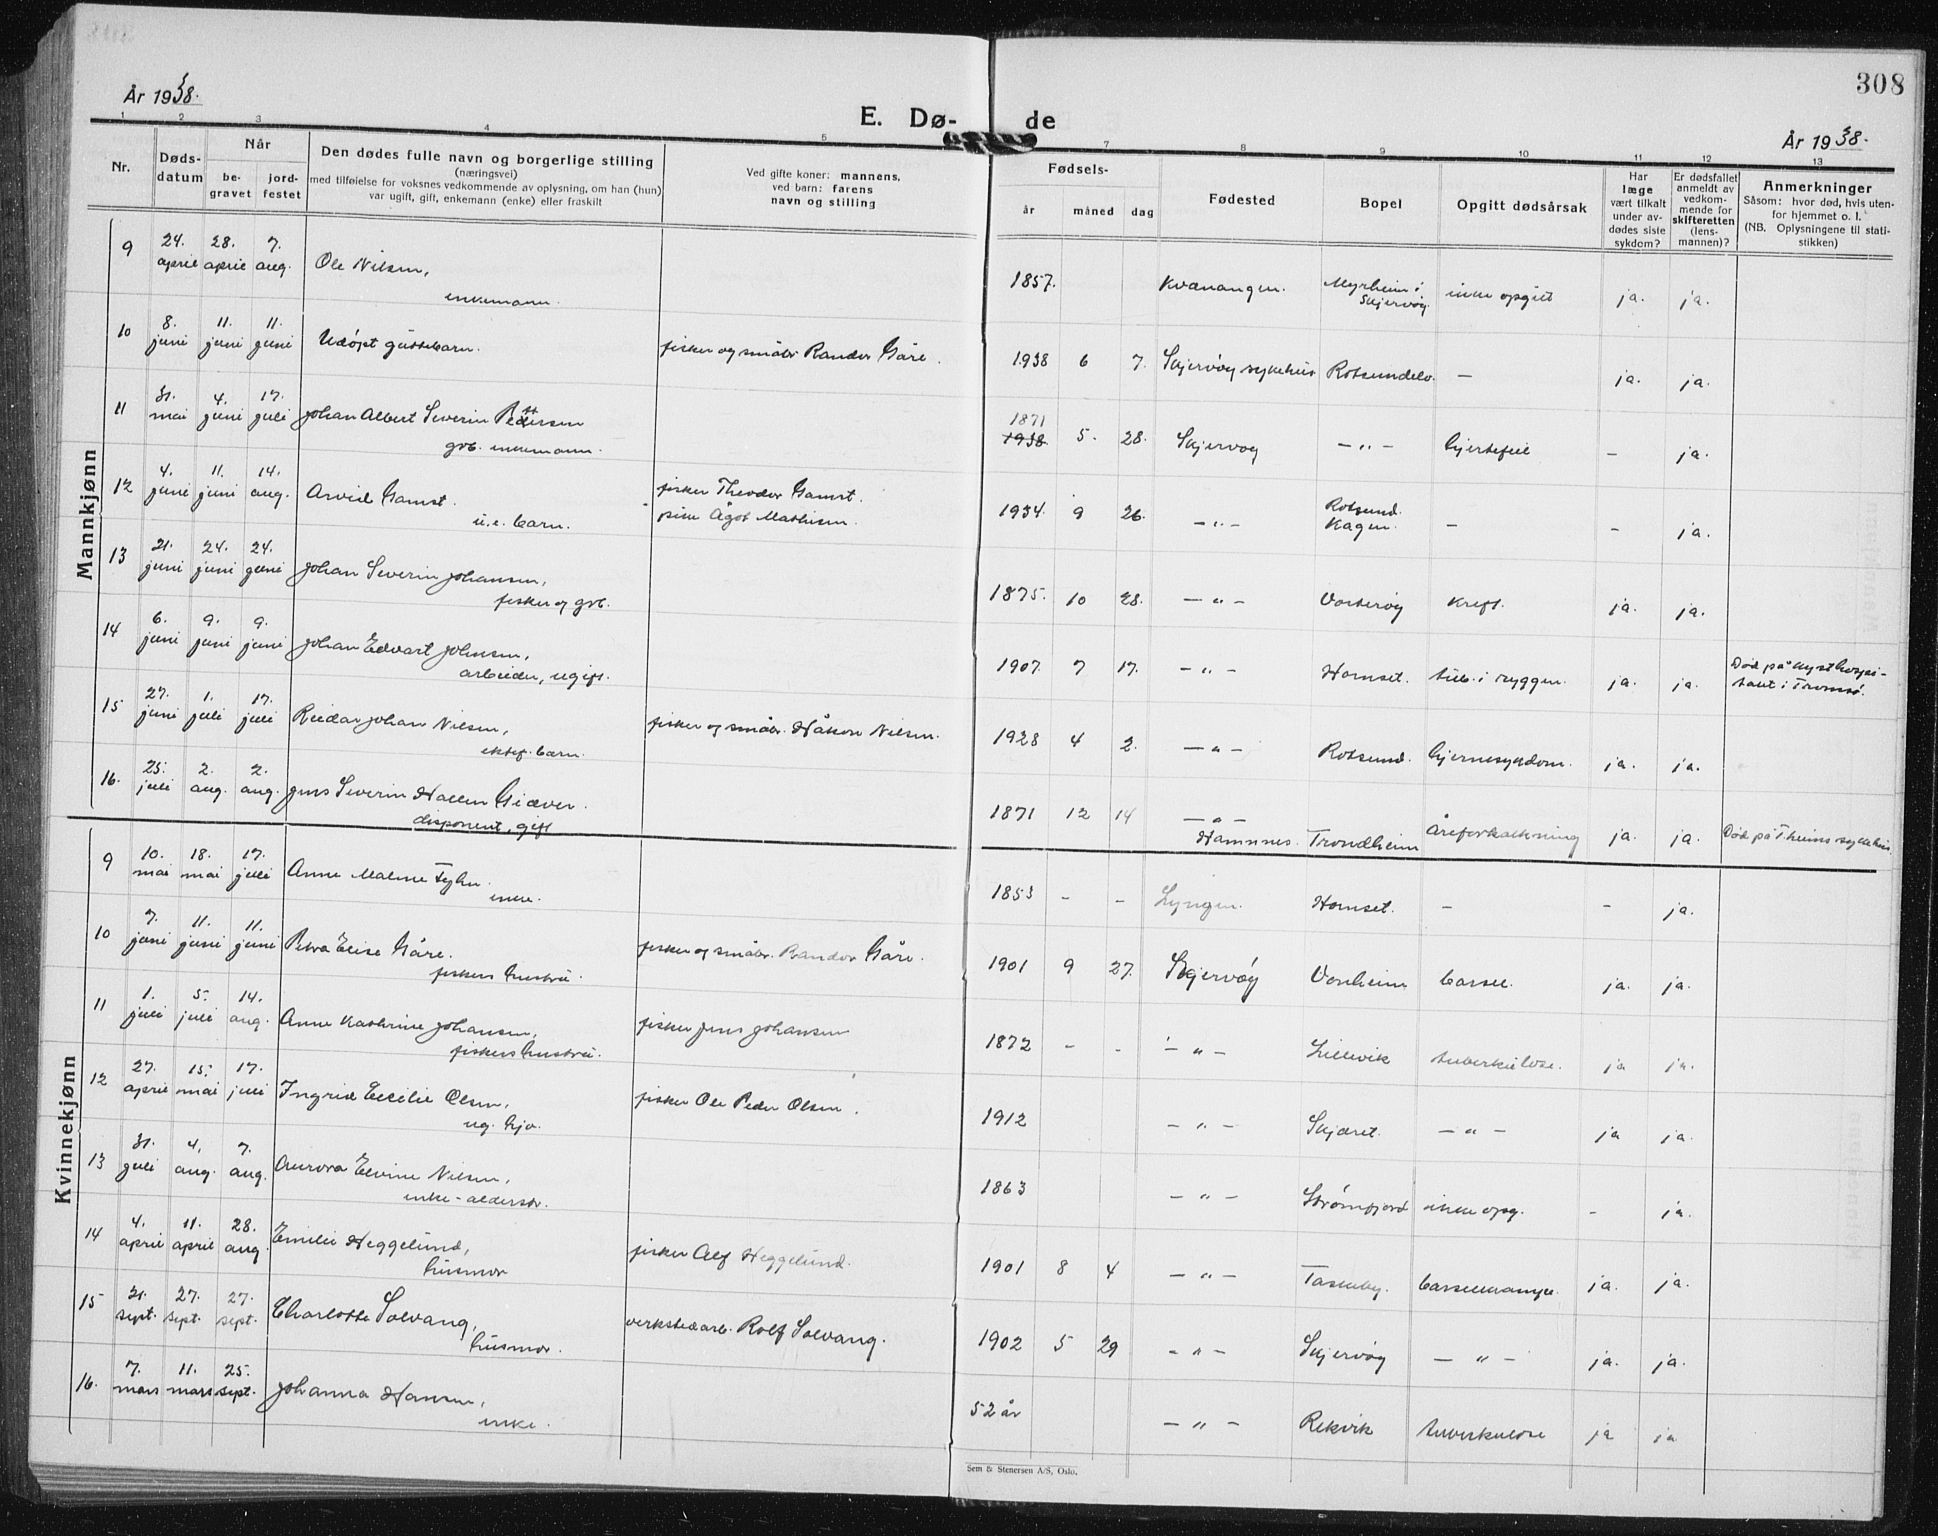 308
År 1938.
E. Dø- de
År 1938.
1 2 3 4 5 7 8 9 10 11 12 13
Nr.
Døds-
datum
Når
be-
gravet
jord-
festet
Den dødes fulle navn og borgerlige stilling
(næringsvei)
med tilføielse for voksnes vedkommende av oplysning, om han (hun)
var ugift, gift, enkemann (enke) eller fraskilt
Ved gifte koner: mannens,
ved barn: farens
navn og stilling
Fødsels-
år måned dag
Fødested
Bopel
Opgitt dødsårsak
Har
læge
vært tilkalt
under av-
dødes siste
sykdom?
Er dødsfallet
anmeldt av
vedkom-
mende for
skifteretten
(lens-
mannen)?
Anmerkninger
Såsom: hvor død, hvis uten-
for hjemmet o. l.
(NB. Oplysningene til stati-
stikken)
Mannkjønn
9 24. april 28. april 7. aug. Ole Nilsen, 1857. Kvænangen. Myrheim i ikke opgitt ja. ja.
enkemann. Skjervøy
10 8. juni 11. juni 11. juni Udøpt guttebarn. fisker og småbr. Rander Gåre. 1938 6 7. Skjervøy sykehus Rotsundelv. — ja. ja.
11 31. mai 4. juni 17. juli Johan Albert Severin Pedersen 1871 1938 5. 28. Skjervøy —"— hjertefeil - ja.
gvb. enkemann.
12 4. juni 11. juni 14. aug. Arvid Gamst. fisker Theodor Gamst. 1934. 9 26. —"— Rotsund. - - ja.
u.e. barn. pike Ågot Mathisen. Kagen.
13 21. juni 24. juni 24. juni Johan Severin Johansen, 1875. 10 28. —"— Vorterøy kreft. ja. ja.
fisker og gvb.
14 6. juni 9. juni 9. juni Johan Edvart Johnsen, 1907. 7 17. —"— Hamset. tub. i ryggen. ja. ja. Død på kysthospi-
arbeider, ugift. talet i Tromsø.
15 27. juni 1. juli 17. juli Reidar Johan Nilsen, fisker og småbr. Håkon Nilsen. 1928 4 2. —"— Rotsund. hjernesykdom. ja. ja.
ektef. barn.
16. 25. juli 2. aug. 2. aug. Jens Severin Hallen Giæver. 1871 12 14 —"— Hamnnes. Trondheim åreforkalkning ja. ja. Død på T.heims sykehus.
disponent, gift
Kvinnekjønn
9 10. mai 18. mai 17. juli Anne Malene Fyhn. 1853 - - Lyngen. Hamset. - - ja.
enke.
10 7. juni 11. juni 11. juni Petra Elise Gåre. fisker og småbr. Rander Gåre. 1901 9 27. Skjervøy Vonheim barsel. ja. ja.
fiskers hustru.
11 1. juli 5. juli 14. aug. Anne Kathrine Johansen, fisker Jens Johansen 1872 - - —"— Lillevik tuberkulose. ja ja.
fiskers hustru.
12 27. april 15. mai 17. juli Ingrid Cecilie Olsen, fisker Ole Peder Olsen. 1912 —"— Skjæret. —"— ja ja.
ug. hjv.
13 31. juli 4. aug. 7. aug. Aurora Elvine Nilsen, 1863 —"— Strømfjord ikke opg. - ja.
enke - alderstr.
14 4. april 11. april 28. aug. Emilie Heggelund, fisker Alf Heggelund. 1901 8 4 —"— Taskeby. barselkrampe. ja. ja.
husmor
15 21. sept. 27. sept. 27. sept. Charlotte Solvang, verkstedarb. Rolf Solvang. 1902 5 29 —"— Skjervøy —"— ja. ja.
husmor.
16. 7. mars 11. mars 25. sept. Johanna Hansen, 52 år —"— Rekvik tuberkulose ja ja
enke.
Sem & Stenersen A/S, Oslo.